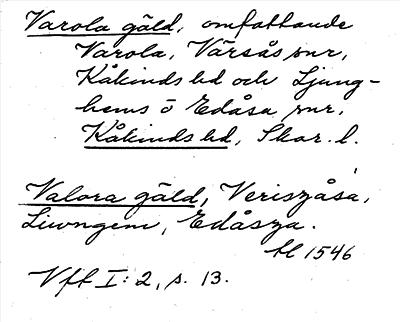 Varola gäld, omfattande
Varola, Värsås snr,
Kåkinds hd och Ljung-
hems o Edåsa snr,
Kåkinds hd, Skar. l.
Valora gäld, Veriszåsa,
Liwngem, Edåsza.
1546
Vft I: 2, s. 13.